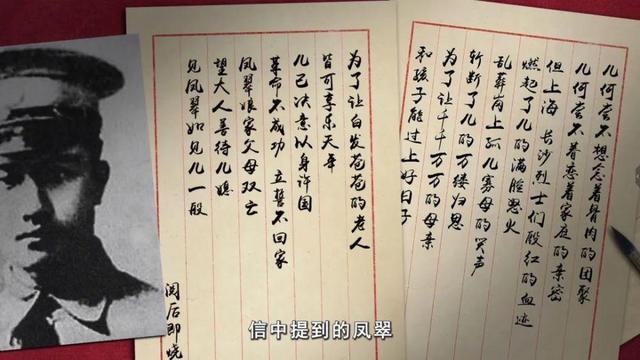 儿何尝不想念着骨肉的团聚
儿何尝不眷恋着家庭的亲密
但上海 长沙烈士们殷红的血迹
燃起了儿的满腔怒火
乱葬岗上孤儿寡母的哭声
斩断了儿的万缕归思
为了让千千万万的母亲
和孩子能过上好日子
为了让白发苍苍的老人
皆可享乐天年
儿已决意以身许国
革命不成功 立誓不回家
凤翠娘家父母双亡
望大人善待儿媳
见凤翠如见儿一般
阅后即烧
信中提到的凤翠